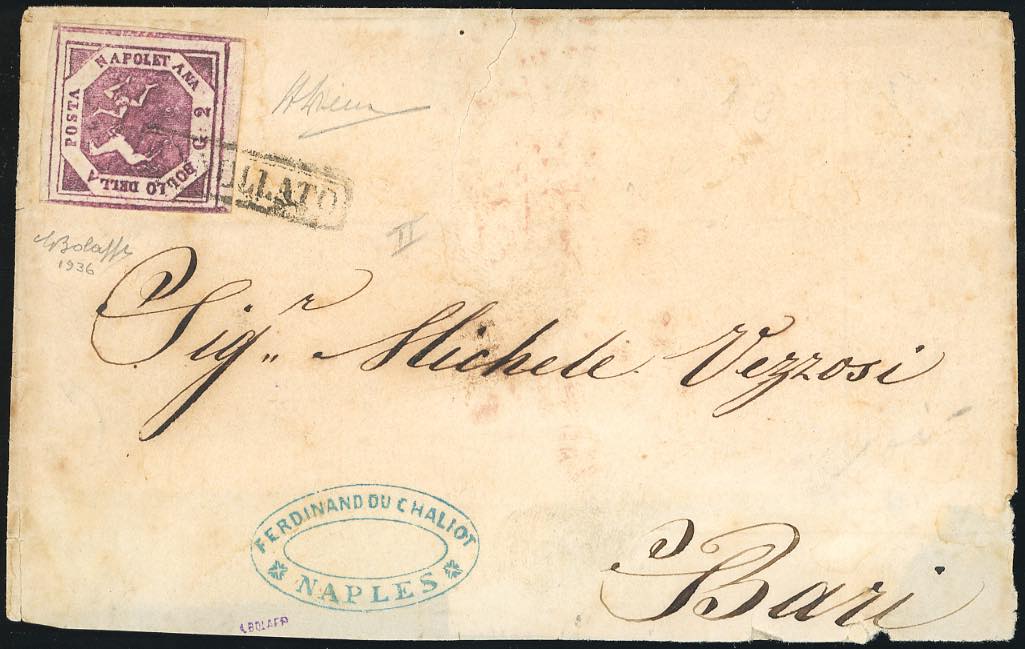 POSTA NAPOLETANA
BOLLO DELLA
G. 2
OLLATO
Bolaffi
1936
II
Sig.r Michele Vezzosi
FERDINAND DU CHALIOT
NAPLES
Bari
A.BOLAFFI